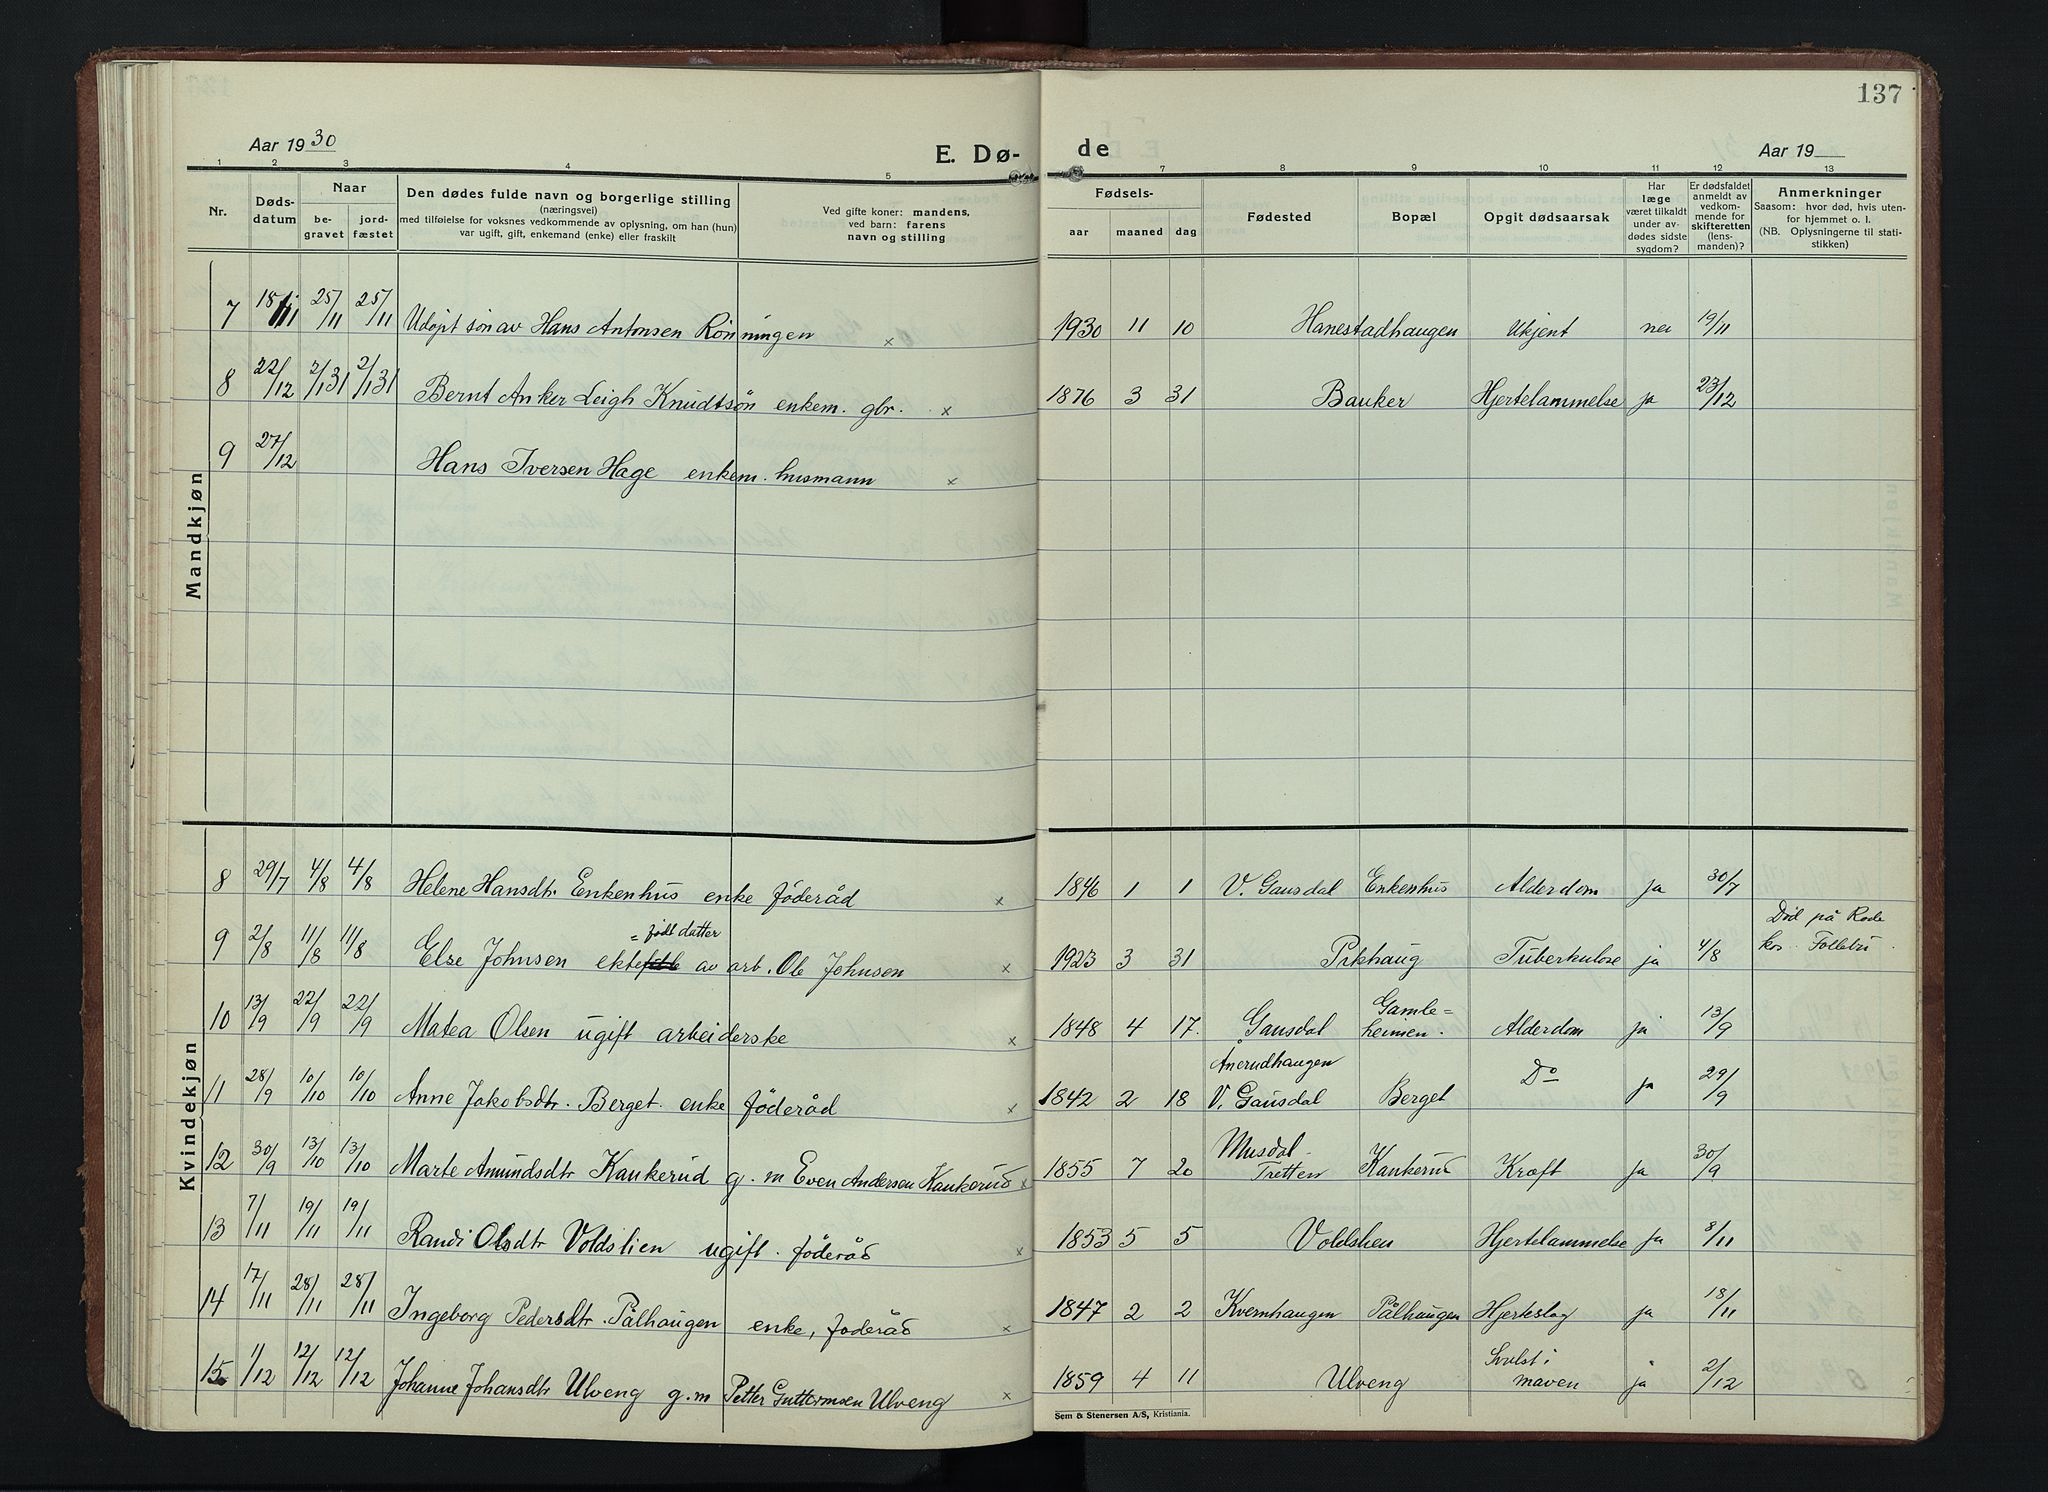 137
Aar 1930
E. Dø-
de
Aar 19
1 2 3 4 5 7 8 9 10 11 12 13
Nr.
Døds-
datum
Naar
be-
gravet
jord-
fæstet
Den dødes fulde navn og borgerlige stilling
(næringsvei)
med tilføielse for voksnes vedkommende av oplysning, om han (hun)
var ugift, gift, enkemand (enke) eller fraskilt
Ved gifte koner: mandens,
ved barn: farens
navn og stilling
Fødsels-
aar maaned dag
Fødested
Bopæl
Opgit dødsaarsak
Har
læge
været tilkaldt
under av-
dødes sidste
sygdom?
Er dødsfaldet
anmeldt av
vedkom-
mende for
skifteretten
(lens-
manden)?
Anmerkninger
Saasom: hvor død, hvis uten-
for hjemmet o. l.
(NB. Oplysningerne til stati-
stikken)
Mandkjøn
7 18/11 25/11 25/11 Udøpt søn av Hans Antonsen Rønningen x 1930 11 10 Hanestadhaugen Ukjent nei 19/11
8 22/12 2/1 31 2/1 31 Bernt Anker Leigh Knudtsøn enkem. gbr. x 1876 3 31 Bauker Hjertelammelse ja 23/12
9 27/12 Hans Iversen Hage enkem. husmann x
Kvindekjøn
8 29/7 4/8 4/8 Helene Hansdtr. Enkenhus enke føderåd x 1846 1 1 V. Gausdal Enkenhus Alderdom ja 30/7
= født datter
9 2/8 11/8 11/8 Else Johnsen ekte av arb. Ole Johnsen x 1923 3 31 Pikhaug Tuberkulose ja 4/8 Død på Røde
kors Follebu
10 13/9 22/9 22/9 Matea Olsen ugift arbeiderske x 1848 4 17. Gausdal Gamle=
heimen. Alderdom ja 13/9
Ånerudhaugen
11 28/9 10/10 10/10 Anne Jakobsdtr. Berget enke føderåd x 1842 2 18 V. Gausdal Berget Do ja 29/9
12 30/9 13/10 13/10 Marte Amundsdtr Kankerud g. m Even Andersen Kankerud x 1855 7 20 Musdal
Tretten Kankerud Kræft ja 30/9
13 7/11 19/11 19/11 Randi Olsdtr Voldslien ugift. føderåd x 1853 5 5 Voldslien Hjertelammelse ja 8/11
14 17/11 28/11 28/11 Ingeborg Pedersdtr. Pålhaugen enke, føderåd x 1847 2 2 Kvernhaugen Pålhaugen Hjerteslag ja 18/11
15 1/12 12/12 12/12 Johanne Johansdtr Ulveng g. m Petter Guttormsen Ulveng x 1859 4 11 Ulveng Svulst i
maven ja 2/12
Sem & Stenersen A/S, Kristiania.